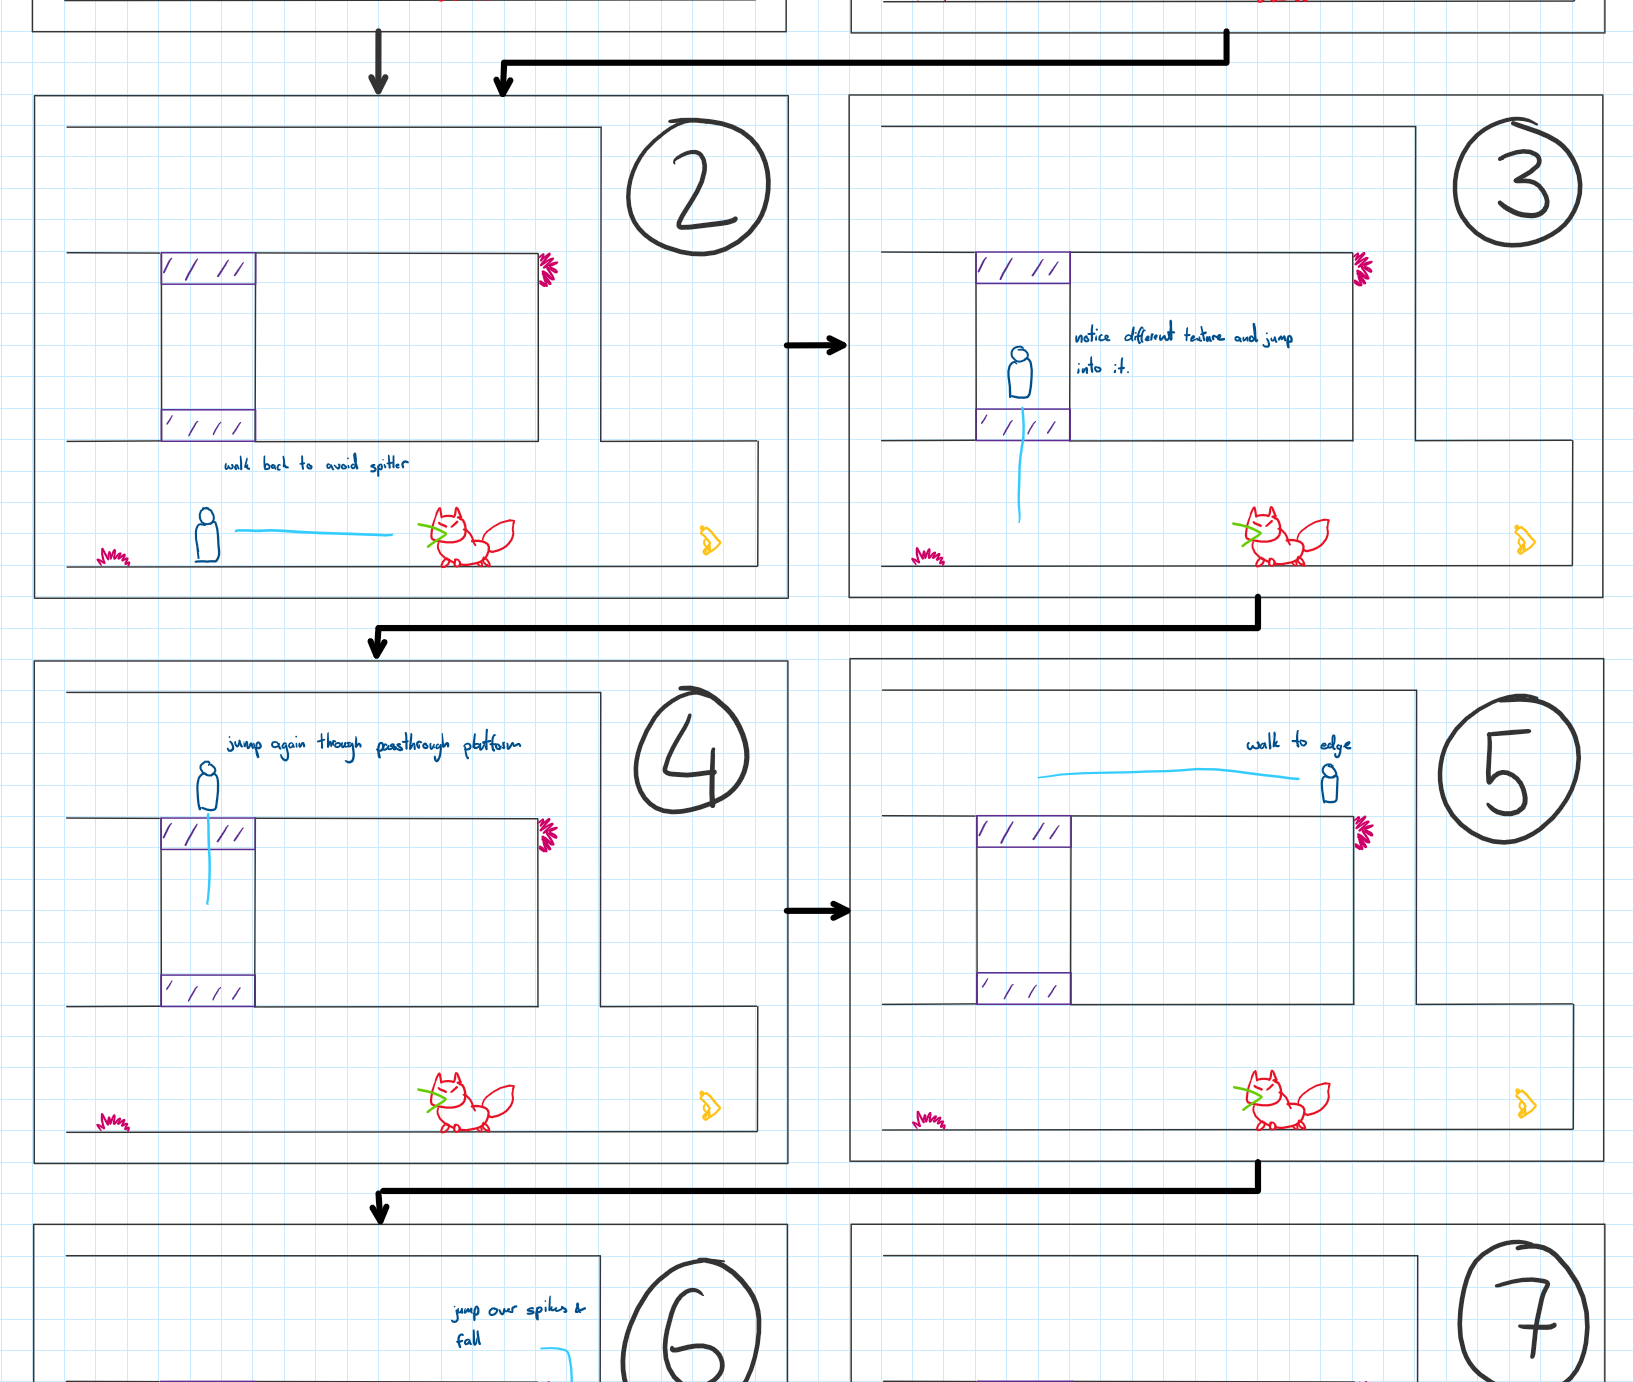 2
walk back to avoid spitter
3
notice different texture and jump
into it.
4
jump again through passthrough platform
5
walk to edge
6
jump over spikes &
fall
7